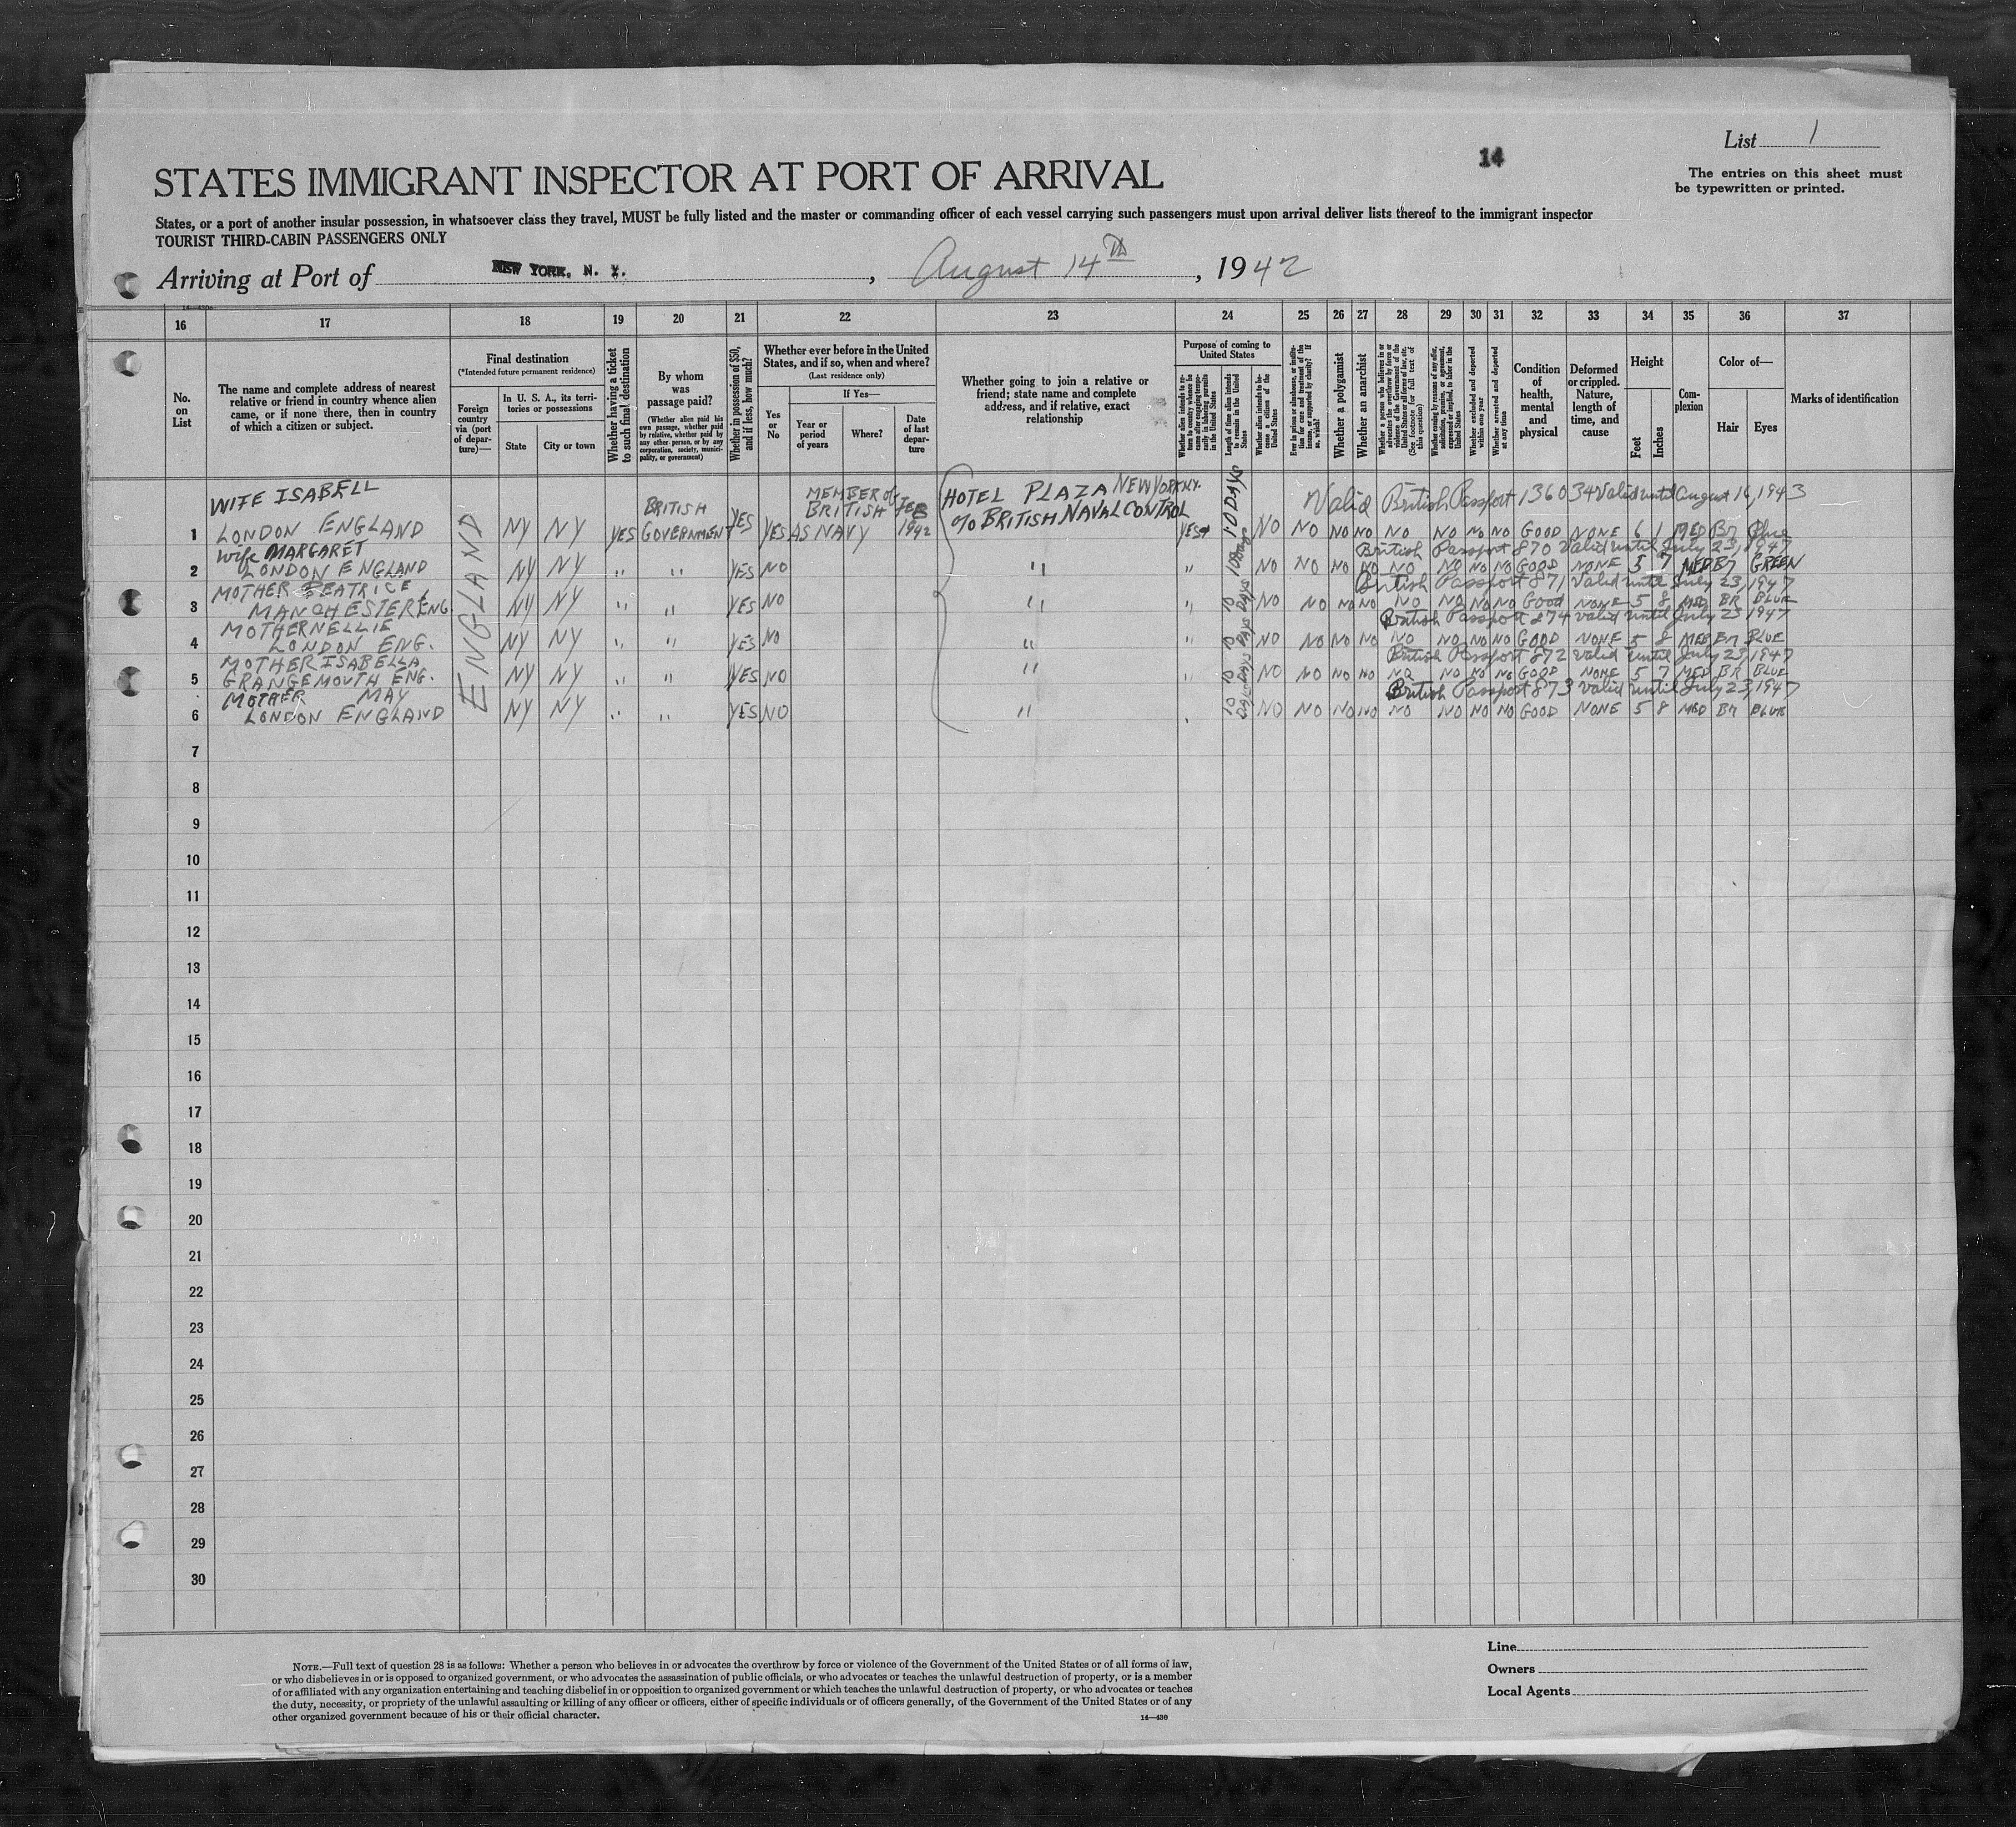 List 1
14
STATES IMMIGRANT INSPECTOR AT PORT OF ARRIVAL
The entries on this sheet must
be typewritten or printed.
States, or a port of another insular possession, in whatsoever class they travel, MUST be fully listed and the master or commanding officer of each vessel carrying such passengers must upon arrival deliver lists thereof to the immigrant inspector
TOURIST THIRD-CABIN PASSENGERS ONLY
Arriving at Port of NEW YORK, N. Y. , August 14th , 1942
16 17 18 19 20 21 22 23 24 25 26 27 28 29 30 31 32 33 34 35 36 37
No. on List
The name and complete address of nearest
relative or friend in country whence alien
came, or if none there, then in country
of which a citizen or subject.
Final destination
(*Intended future permanent residence)
Foreign country via (port of departure)—
In U. S. A., its territories or possessions
State
City or town
Whether having a ticket to such final destination
By whom was passage paid?
(Whether alien paid his own passage, whether paid by relative, whether paid by any other person, or by any corporation, society, municipality, or government)
Whether in possession of $50, and if less, how much?
Whether ever before in the United States, and if so, when and where?
(Last residence only)
Yes or No
If Yes—
Year or period of years
Where?
Date of last departure
Whether going to join a relative or
friend; state name and complete
address, and if relative, exact
relationship
Purpose of coming to United States
Length of time alien intends to remain in the United States
Whether alien intends to become a citizen of the United States
Whether a polygamist
Whether an anarchist
(See footnote for full text of this question)
Whether excluded and deported within one year
Whether arrested and deported at any time
Condition of health, mental and physical
Deformed or crippled. Nature, length of time, and cause
Height
Feet
Inches
Complexion
Color of—
Hair
Eyes
Marks of identification
WIFE ISABELL
BRITISH MEMBER of BRITISH FEB HOTEL PLAZA NEW YORK NY. 10 DAYS Valid British Passport 136034 Valid until August 16, 1943
1 LONDON ENGLAND ENGLAND NY NY YES GOVERNMENT YES YES AS NAVY 1942 c/o BRITISH NAVAL CONTROL YES NO NO NO NO NO NO NO NO GOOD NONE 6 1 MED Br Blue
Wife MARGARET British Passport 870 Valid until July 23, 1947
2 LONDON ENGLAND NY NY " " YES NO " " 10 Days NO NO NO NO NO NO NO NO GOOD NONE 5 7 MED Br GREEN
MOTHER BEATRICE British Passport 871 Valid until July 23 1947
3 MANCHESTER ENG NY NY " " YES NO " " 10 DAYS NO NO NO NO NO NO NO NO Good NONE 5 8 MED BR BLUE
MOTHER NELLIE British Passport 874 Valid until July 23 1947
4 LONDON ENG. NY NY " " YES NO " " 10 DAYS NO NO NO NO NO NO NO NO GOOD NONE 5 8 MED Br BLUE
MOTHER ISABELLA British Passport 872 Valid until July 23, 1947
5 GRANGEMOUTH ENG. NY NY " " YES NO " " 10 DAYS NO NO NO NO NO NO NO NO GOOD NONE 5 7 MED BR BLUE
MOTHER MAY British Passport 873 Valid until July 23, 1947
6 LONDON ENGLAND NY NY " " YES NO " " 10 DAYS NO NO NO NO NO NO NO NO GOOD NONE 5 8 MED Br BLUE
7
8
9
10
11
12
13
14
15
16
17
18
19
20
21
22
23
24
25
26
27
28
29
30
Line
Owners
Local Agents
NOTE.—Full text of question 28 is as follows: Whether a person who believes in or advocates the overthrow by force or violence of the Government of the United States or of all forms of law,
or who disbelieves in or is opposed to organized government, or who advocates the assassination of public officials, or who advocates or teaches the unlawful destruction of property, or is a member
of or affiliated with any organization entertaining and teaching disbelief in or opposition to organized government or which teaches the unlawful destruction of property, or who advocates or teaches
the duty, necessity, or propriety of the unlawful assaulting or killing of any officer or officers, either of specific individuals or of officers generally, of the Government of the United States or of any
other organized government because of his or their official character.
14—430